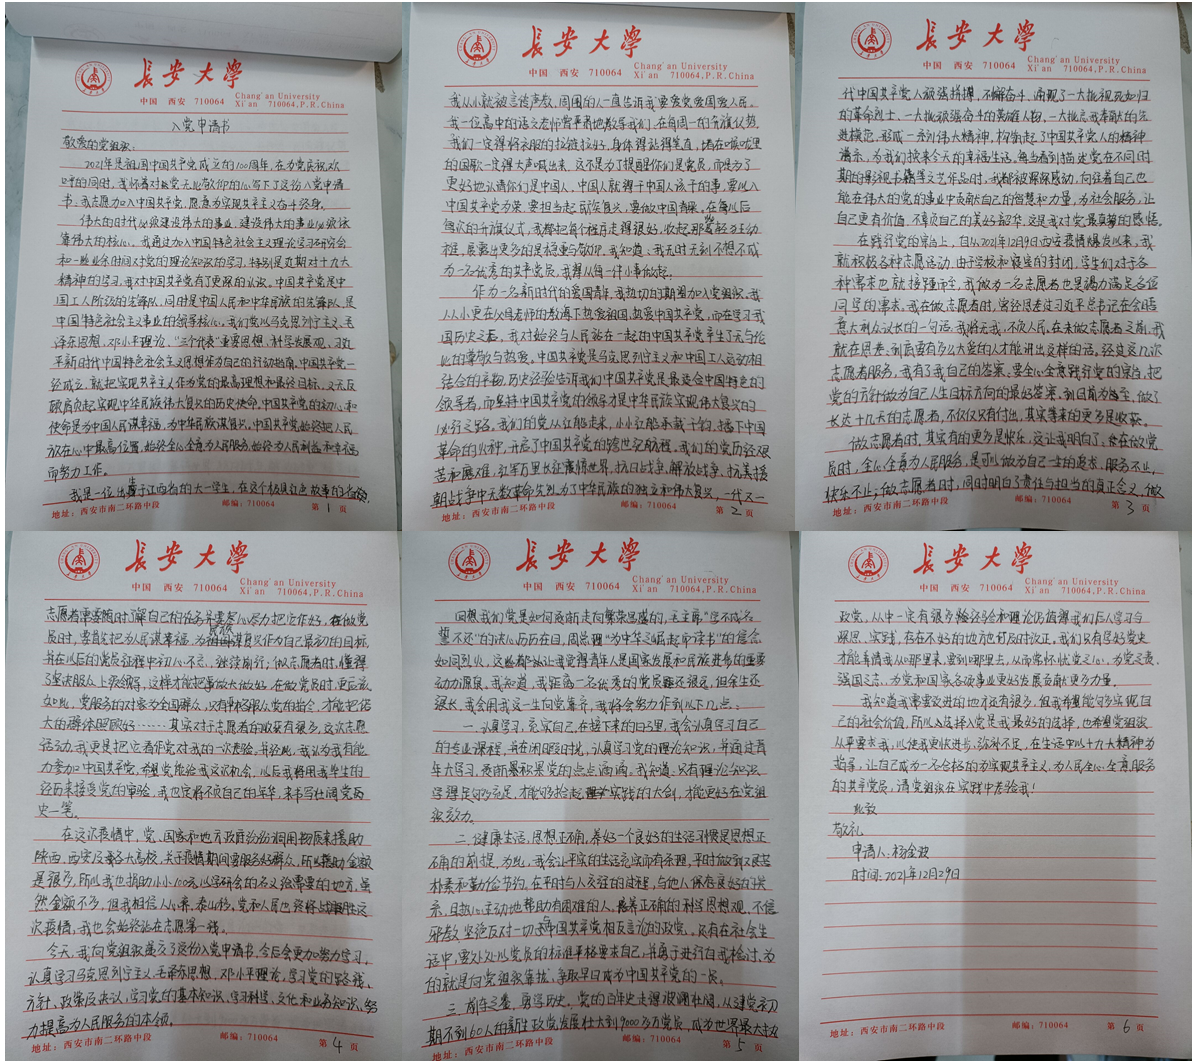 长安大学
中国 西安 710064
Chang'an University
Xi'an 710064,P.R.China
入党申请书
敬爱的党组织:
2021年是祖国中国共产党成立的100周年,在为党庆祝欢
呼的同时,我怀着对党无比敬仰的心写下了这份入党申请
书。我志愿加入中国共产党,愿意为实现共产主义奋斗终身。
伟大的时代必须建设伟大的事业,建设伟大的事业必须依
靠伟大的核心。我通过加入中国特色社会主义理论学习研究会
和一些业余时间对党的理论知识的学习,特别是近期对十九大
精神的学习,我对中国共产党有了更深的认识。中国共产党是中
国工人阶级的先锋队,同时是中国人民和中华民族的先锋队,是
中国特色社会主义事业的领导核心。我们党以马克思列宁主义、毛
泽东思想、邓小平理论、“三个代表”重要思想、科学发展观、习近
平新时代中国特色社会主义思想作为自己的行动指南,中国共产党一
经成立,就把实现共产主义作为党的最高理想和最终目标,义无反
顾肩负起实现中华民族伟大复兴的历史使命,中国共产党的初心和
使命是为中国人民谋幸福,为中华民族谋复兴,中国共产党始终把人民
放在心中最高位置,始终全心全意为人民服务,始终为人民利益和幸福
而努力工作。
我是一位出生于江西省的大一学生,在这个极具红色故事的
地址:西安市南二环路中段 邮编:710064 第 1 页
长安大学
中国 西安 710064
Chang'an University
Xi'an 710064,P.R.China
我从小就被言传声教,周围的人一直告诉我要爱党爱国爱人民。
我一位高中的语文老师曾严肃地教导我们,在每周一的升旗仪式,
我们一定得将衣服的拉链拉好,身体得站得笔直,堵在喉咙里
的国歌一定得大声喊出来,这不是为了提醒你们是党员,而是为了
更好地认清你们是中国人,中国人就得干中国人该干的事,要以入
中国共产党为荣,要担当起民族复兴,要做中国青果。在每以后
每次的升旗仪式,我都把每个程序走得很好,收起那份轻浮主动
性,展露出更多的是稳重与敬仰。我知道,我无时无刻不想不成
为一名优秀的共产党员,我得从每一件小事做起。
作为一名新时代的爱国青年,我热切的期盼加入党组织。我
从小更在父母老师的教导下热爱祖国,热爱中国共产党,而在学习我
国历史之者,我对始终与人民站在一起的中国共产党产生了无与伦
比的尊敬与热爱。中国共产党是马克思列宁主义和中国工人运动相
结合的产物,历史经验告诉我们中国共产党是最适合中国特色的
领导者,而坚持中国共产党的领导才是中华民族实现伟大复兴的
必行之路。我们的党从红船走来,小小红船承载千钧,播下中国
革命的火种,开启了中国共产党的跨世纪航程。我们的党历经艰
苦和磨难,红军万里长征震惊世界,抗日战争、解放战争、抗美援
朝战争中无数革命先烈,为了中华民族的独立和伟大复兴,一代又一
地址:西安市南二环路中段 邮编:710064 第 2 页
长安大学
中国 西安 710064
Chang'an University
Xi'an 710064,P.R.China
代中国共产党人顽强拼搏,不懈奋斗,涌现了一大批视死如归
的革命烈士,一大批顽强奋斗的英雄人物,一大批忘我奉献的先
进模范,形成一系列伟大精神,构筑起了中国共产党人的精神
谱系,为我们换来今天的幸福生活,每当看到描述党在不同时
期的影视书籍等文艺作品时,我都被深深感动,向往着自己也
能在伟大的党的事业中贡献自己的智慧和力量,为社会服务,让
自己更有价值,不辜负自己的美好韶华,这是我对党最真挚的感悟。
在践行党的宗旨上,自从2021年12月9日西安疫情爆发以来,我
就积极各种志愿活动,由于学校和寝室的封闭,学生们对于各
种需求也就接踵而至,我做为一名志愿者也是竭力满足各位
同学的需求。我在做志愿者时,曾经思考过习近平总书记在会晤
意大利众议长的一句话,我将无我,不负人民,在未做志愿者之前,我
就在思考,到底要有多么大爱的人才能讲出这样的话,经过这几次
志愿者服务,我有了我自己的答案,要全心全意践行党的宗旨,把
党的方针做为自己人生目标方向的最好答案,到目前为止,做了
长达十几天的志愿者,不仅仅只有付出,其实等来的更多是收获。
做志愿者时,其实有的更多是快乐,这让我明白了,要在做党
员时,全心全意为人民服务,是可以做为自己一生的追求,服务不止,
快乐不止;做志愿者时,同时明白了责任与担当的真正含义,做
地址:西安市南二环路中段 邮编:710064 第 3 页
长安大学
中国 西安 710064
Chang'an University
Xi'an 710064,P.R.China
志愿者需要随时了解自己的任务并要尽心尽力把它作好,在做党
员时,要首先把为人民谋幸福,为民族谋复兴作为自己最初的目标,
并在以后的党员征程中初心不忘,继续前行;做志愿者时,懂得
了坚决服从上级领导,这样才能把事做大做好,在做党员时,更应该
如此,党服务的对象为全国群众,只有积极服从党的指令,才能把偌
大的群体照顾好……其实对于志愿者的收获有很多,这次志愿
活动,我更是把它看作党对我的一次考验,并经此,我认为我有能
力参加中国共产党,希望党能给我这次机会,以后我将用我毕生的
经历来接受党的审验,我也定将不负自己的年华,来书写壮阔党历
史一笔。
在这次疫情中,党、国家和地方政府纷纷调用物质来援助
陕西,西安及各大高校,关于疫情期间要服务好群众,所以援助金额
是很多,所以我也捐助小小100元以学研会的名义给需要的地方,虽
然金额不多,但我相信人心齐,泰山移,党和人民也终将战胜这
次疫情,我也会始终站在志愿第一线。
今天,我向党组织递交了这份入党申请书,今后会更加努力学习,
认真学习马克思列宁主义、毛泽东思想、邓小平理论,学习党的路线、
方针、政策及决议,学习党的基本知识,学习科学、文化和业务知识,努
力提高为人民服务的本领。
地址:西安市南二环路中段 邮编:710064 第 4 页
长安大学
中国 西安 710064
Chang'an University
Xi'an 710064,P.R.China
回想我们党是如何逐渐走向繁荣昌盛的,毛主席“学不成名
誓不还”的决心历历在目,周总理“为中华之崛起而读书”的信念
如同烈火,这些都让我觉得青年人是国家发展和民族进步的重要
动力源泉。我知道,我距离一名优秀的党员虽还很远,但余生还
很长,我会用我这一生向党靠行,我将会努力作到以下几点:
一、认真学习,充实自己,在接下来的日子里,我会认真学习自己
的专业课程,并在闲暇时光,认真学习党的理论知识,并通过青
年大学习,逐渐累积党的点点滴滴。我知道,只有理论知识
学得足够充足,才能够拾起实践的大剑,才能更好在党组
织效力。
二、健康生活,思想正确,养好一个良好的生活习惯是思想正
确的前提,为此,我会让平实的生活充实而有条理,平时做到艰苦
朴素和勤俭节约。在平时与人交往的过程,与他人保持良好的关
系,且热心主动地帮助有困难的人,培养正确的科学思想观,不信
邪教,坚决反对一切与中国共产党相反言论的政党。只有在社会生
活中,要处处以党员的标准严格要求自己,并勇于进行自我检讨,为
的就是向党组织靠拢,争取早日成为中国共产党的一员。
三、前车之鉴,勇学历史,党的百年史走得波澜壮阔,从建党初
期不到60人的新生政党,发展壮大到9000多万党员,成为世界最大执
地址:西安市南二环路中段 邮编:710064 第 5 页
长安大学
中国 西安 710064
Chang'an University
Xi'an 710064,P.R.China
政党,从中一定有很多经验和理论仍值得我们后人学习与
深思、实践,存在不好的地方也可及时改正,我们只有学好党史
才能弄清我从哪里来,要到哪里去,从而常怀忧党之心,为党之责,
强国之志,为党和国家各项事业更好发展贡献更多力量。
我知道我需要改进的地方还有很多,但我希望能够实现自
己的社会价值,所以入选择入党是我最好的选择,也希望党组织
从严要求我,以使我更快进步,弥补不足,在生活中以十九大精神为
指导,让自己成为一名合格的为实现共产主义,为人民全心全意服务
的共产党员,请党组织在实践中考验我!
此致
敬礼
申请人:杨金波
时间:2021年12月29日
地址:西安市南二环路中段 邮编:710064 第 6 页